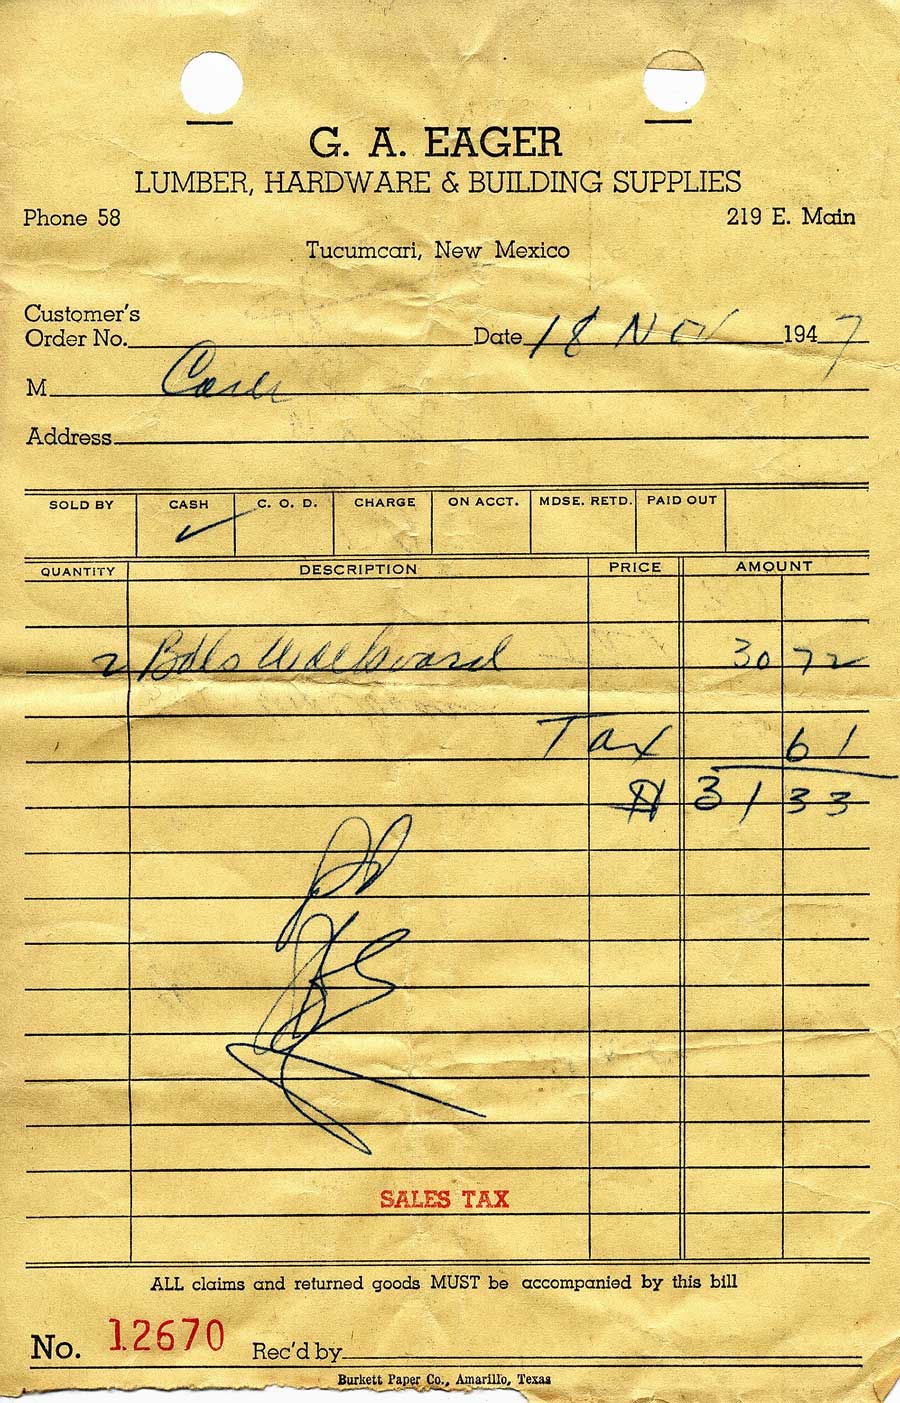 G. A. EAGER
LUMBER, HARDWARE & BUILDING SUPPLIES
Phone 58 219 E. Main
Tucumcari, New Mexico
Customer's
Order No. Date 18 Nov 1947
M Cash
Address
SOLD BY CASH C. O. D. CHARGE ON ACCT. MDSE. RETD. PAID OUT
✓
QUANTITY DESCRIPTION PRICE AMOUNT
2 Bdls 30 72
Tax 61
$ 31 33
Pd
SALES TAX
ALL claims and returned goods MUST be accompanied by this bill
No. 12670 Rec'd by
Burkett Paper Co., Amarillo, Texas